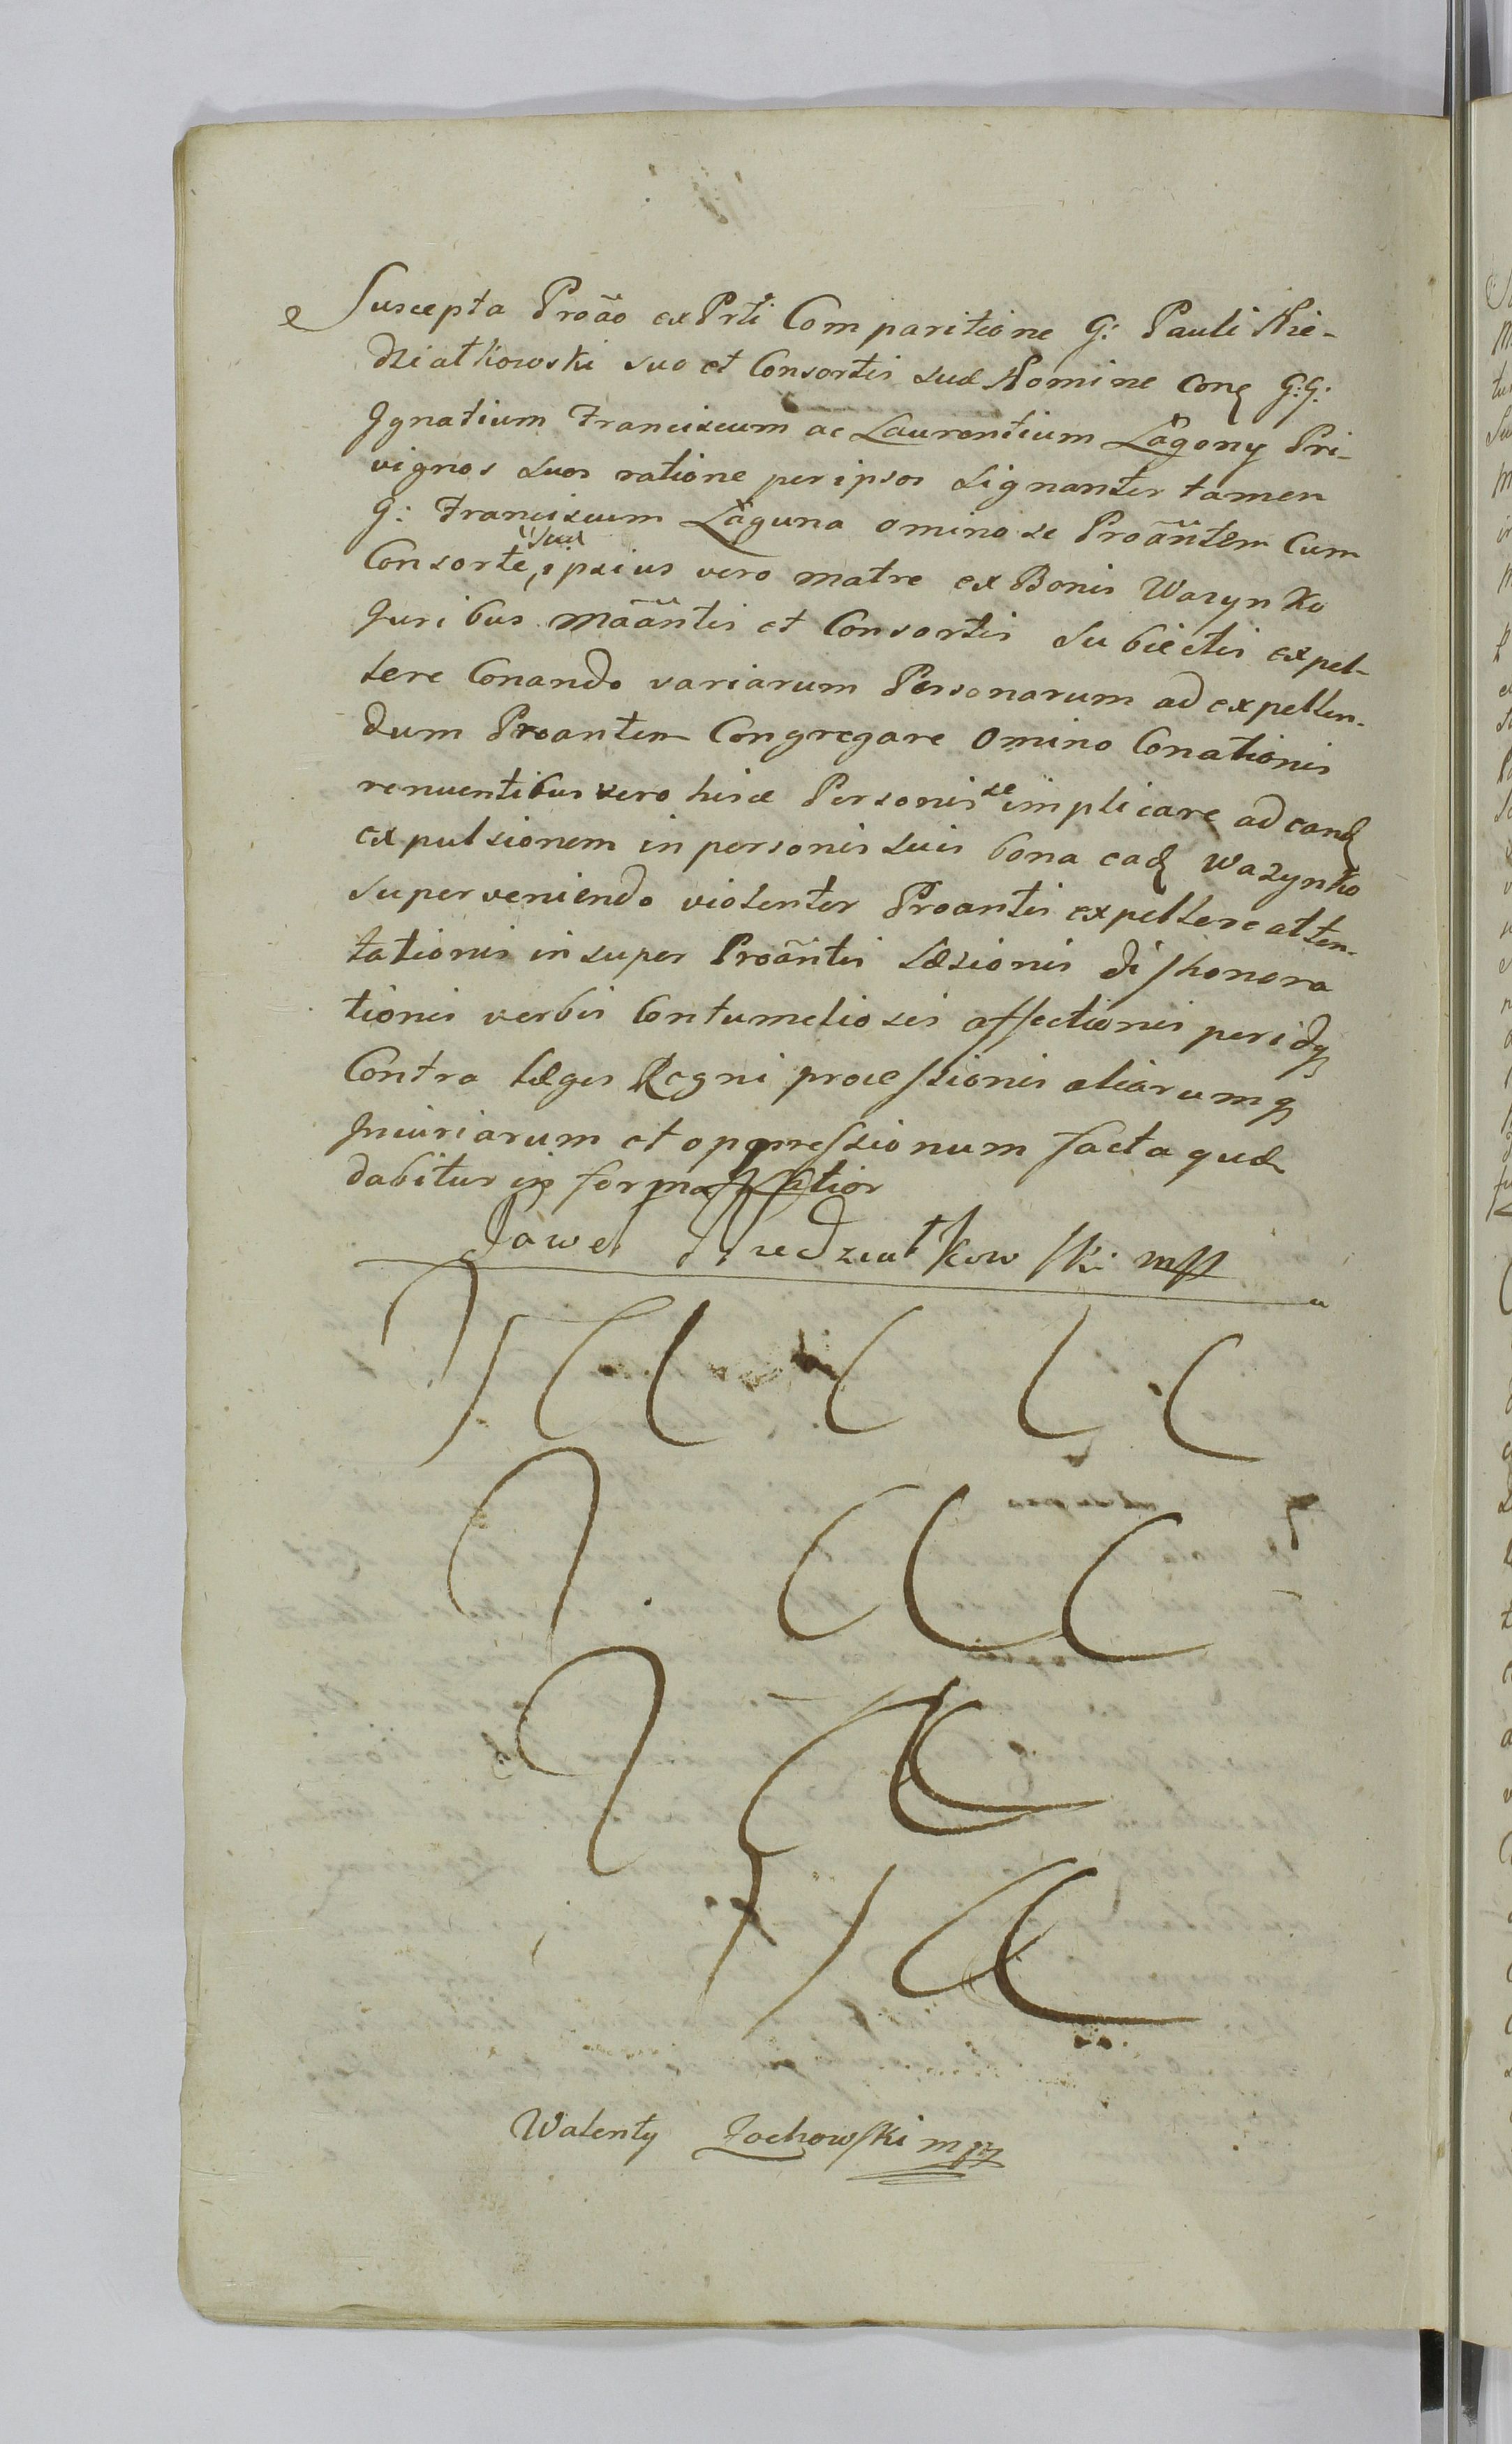 Suscepta Proão ex Prti Comparitione G: Pauli Nie-
dziatkowski suo et Consortis suæ Nomine Conq G:G:
Ignatium Franciscum ac Laurentium Lãgony Pri-
vignos suos ratione per ipsos signanter tamen
G: Franciscum Lãguna ominose Proãntem Cum
Consorte sua ipsius vero matre ex Bonis Wazynko
Juribus mããntis et Consortis Subiectis expel-
lere Conando variarum Personarum ad expellen-
dum Proantem Congregare Omino Conationis
renuentibus vero hisce Personis se implicare ad eand
expulsionem in personis suis bona ead Wazynko
superveniendo violenter Proantis expellere atten-
tationis insuper Proãntis Læsionis dishonora
tionis verbis Contumeliosis affectionis per idq
Contra Læges Regni processionis aliarumq
Injuriarum et oppressionum facta quæ
dabitur in forma latior
Pawel Niedziałkowski mp
Walenty Zochowski mpp